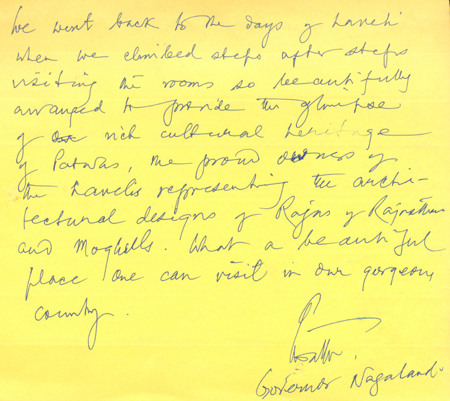 We went back to the days of haveli
when we climbed steps after steps
visiting the rooms so beautifully
arranged to provide the glimpse
of our rich cultural heritage
of Patwas, the proud owners of
the havelis representing the archi-
tectural designs of Rajas of Rajasthan
and Moghells. What a beautiful
place one can visit in our gorgeous
country.
Governor Nagaland.